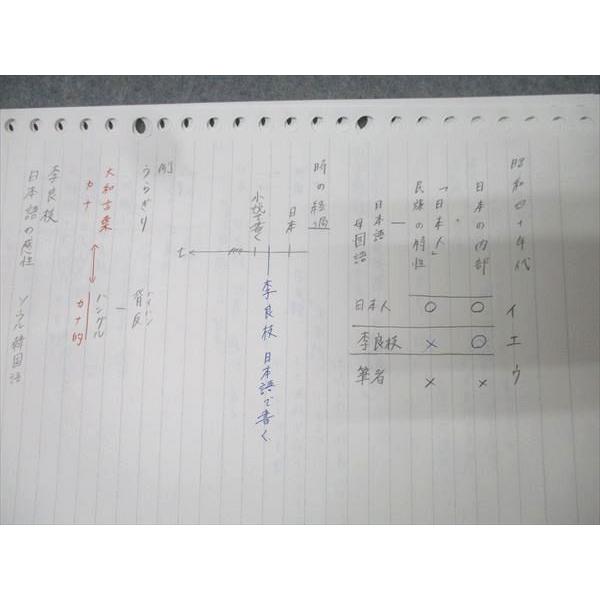 昭和四十年代
日本の内部 ○ ○ × イ エ ウ
「日本人」
民族の特性 ○ × ×
日本人
李良枝
筆者
日本語
母国語
時の経過
日本
小説を書く
t
李良枝 日本語で書く
例
うらぎり
背反
大和言葉
カナ
ハングル
カナ的
李良枝
日本語の感性
ソウル韓国語